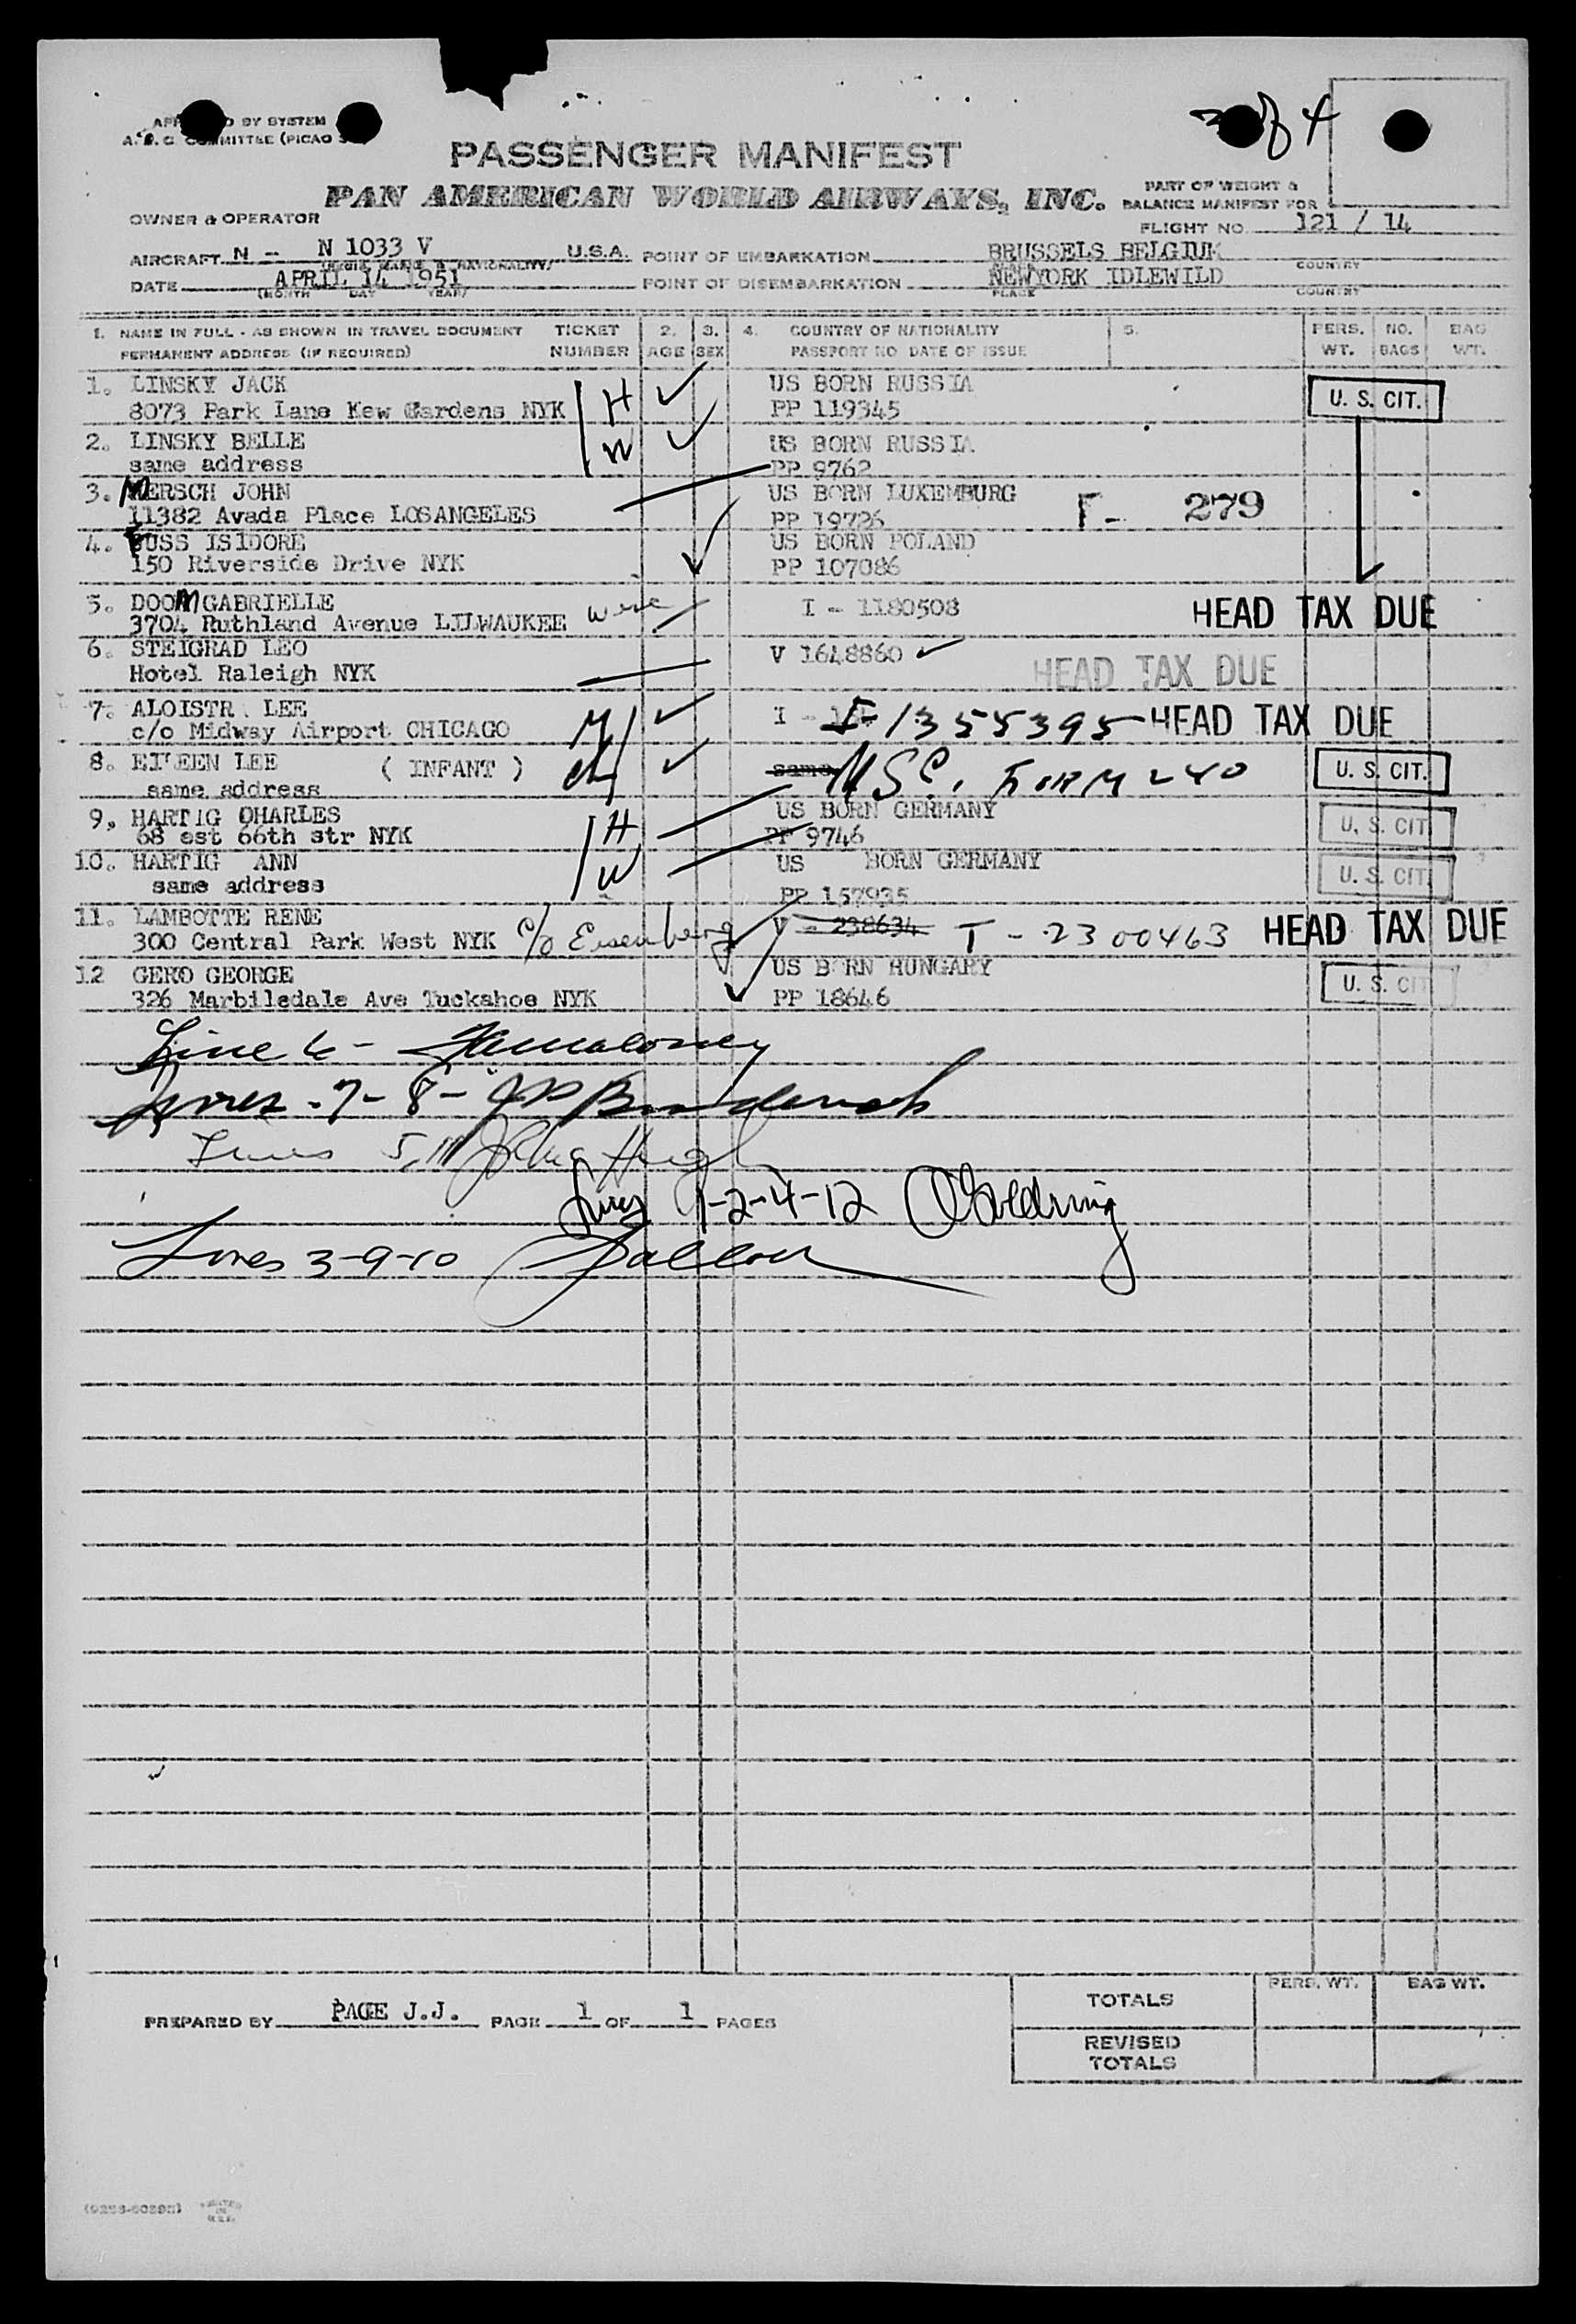 3 of 4
BY SYSTEM
COMMITTEE (PICAO
PASSENGER MANIFEST
PAN AMERICAN WORLD AIRWAYS, INC.
PART OF WEIGHT &
BALANCE MANIFEST FOR
OWNER & OPERATOR
FLIGHT NO. 121 / 14
AIRCRAFT N -- N 1033 V U.S.A. POINT OF EMBARKATION BRUSSELS BELGIUM
DATE APRIL 14 1951 POINT OF DISEMBARKATION NEWYORK IDLEWILD COUNTRY
(MONTH DAY YEAR) PLACE COUNTRY
1. NAME IN FULL - AS SHOWN IN TRAVEL DOCUMENT TICKET 2. 3. 4. COUNTRY OF NATIONALITY 5. PERS. NO. BAG
PERMANENT ADDRESS (IF REQUIRED) NUMBER AGE SEX PASSPORT NO DATE OF ISSUE WT. BAGS WT.
1. LINSKY JACK H US BORN RUSSIA U. S. CIT.
8073 Park Lane Kew Gardens NYK PP 119345
2. LINSKY BELLE W US BORN RUSSIA
same address PP 9762
3. MERSCH JOHN US BORN LUXEMBURG F - 279
11382 Avada Place LOSANGELES PP 19726
4. FUSS ISIDORE US BORN POLAND
150 Riverside Drive NYK PP 107086
5. DOOM GABRIELLE I - 1180508 HEAD TAX DUE
3704 Ruthland Avenue LILWAUKEE Wisc
6. STEIGRAD LEO V 1648860
Hotel Raleigh NYK HEAD TAX DUE
7. ALOISTR. LEE M I - I-1355395 HEAD TAX DUE
c/o Midway Airport CHICAGO
8. EILEEN LEE ( INFANT ) ch same USC. FORM 240 U. S. CIT.
same address
9. HARTIG CHARLES H US BORN GERMANY U. S. CIT.
68 est 66th str NYK PP 9746
10. HARTIG ANN W US BORN GERMANY U. S. CIT.
same address PP 157935
11. LAMBOTTE RENE V - 238634 T - 2300463 HEAD TAX DUE
300 Central Park West NYK c/o Eisenberg
12 GERO GEORGE US BORN HUNGARY U. S. CIT
326 Marbiledale Ave Tuckahoe NYK PP 18646
Line 6 -
Lines - 7 - 8 -
Lines 5, 11
Lines 1-2-4-12 Goldring
Lines 3-9-10
PREPARED BY PAGE J.J. PAGE 1 OF 1 PAGES
PERS. WT. BAG WT.
TOTALS
REVISED
TOTALS